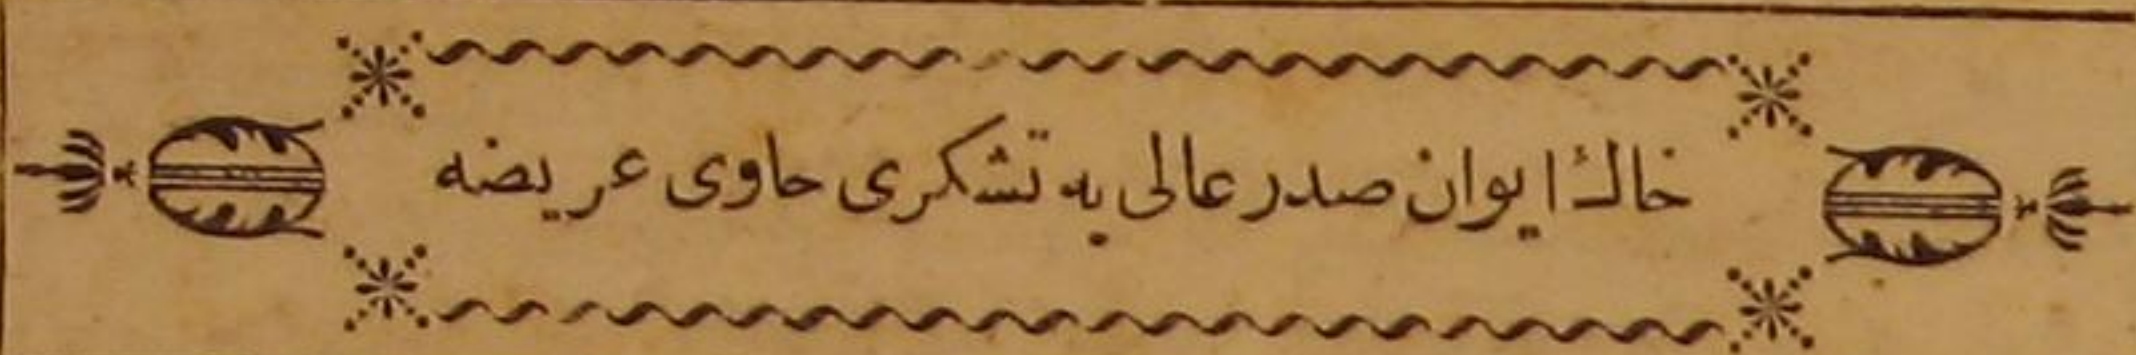 خاك ايوان صدر عالی يه تشكری حاوی عريضه